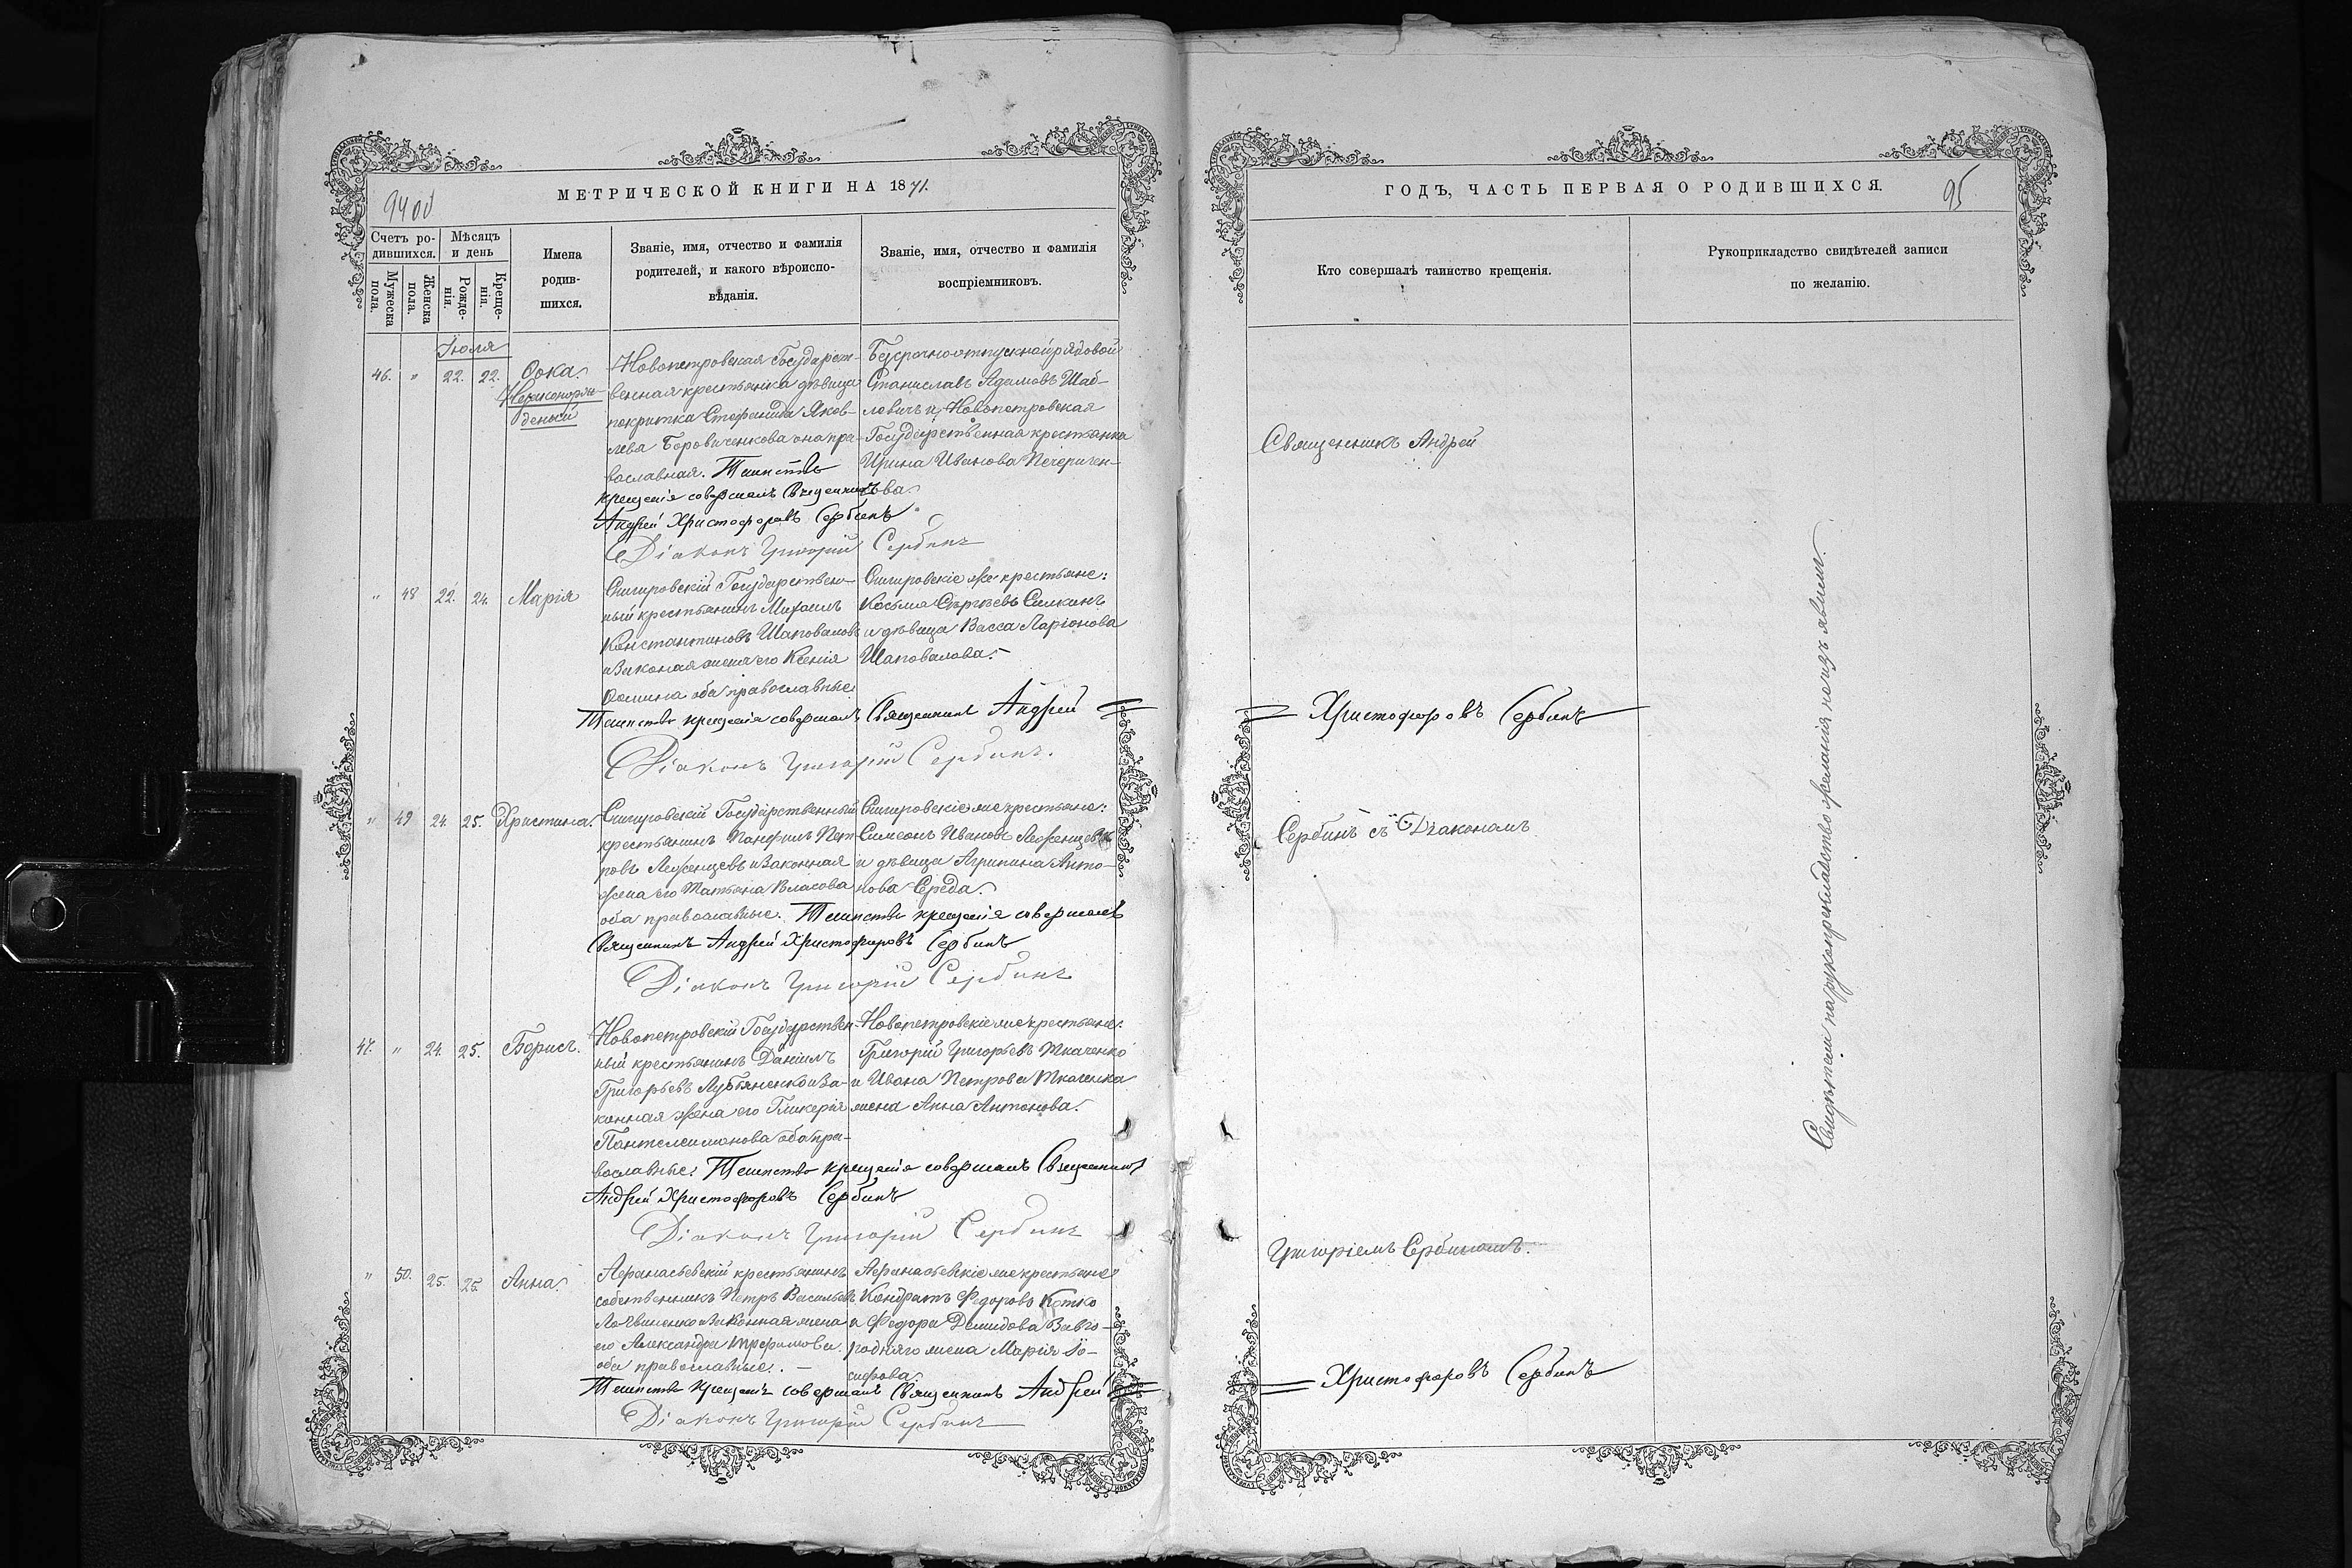 МЕТРИЧЕСКОЙ КНИГИ НА 1871.
Счетъ ро-
дившихся.
Мужеска
пола.
Женска
пола.
Мѣсяцъ
и день
Рожде-
нія.
Креще-
нія.
Имена
родив-
шихся.
Званіе, имя, отчество и фамилія
родителей, и какого вѣроиспо-
вѣданія.
Званіе, имя, отчество и фамилія
воспріемниковъ.
Іюля
46. " 22. 22.
Ѳока.
Незаконорож-
деный
Новопетровская Государст-
венная крестьянка дѣвица
покритка Стефанида Яков-
лева Боровиченкова она пра-
вославная. Таинство
крещенія совершалъ Священникъ
Андрей Христофоровъ Сербинъ
Діаконъ Григорій Сербинъ
Безсрочноотпускной рядовой
Станиславъ Адамовъ Шаб-
левичъ и Новопетровская
Государственная крестьянка
Ирина Иванова Печеричен-
кова.
" 48 22. 24. Марія
Государствен-
ный крестьянинъ Михаилъ
Константиновъ Шаповаловъ
и Законая жена его Ксенія
Ѳомина оба православные.
Таинство крещенія совершалъ Священникъ Андрей
Діаконъ Григорій Сербинъ.
же крестьяне:
Косьма Сергѣевъ Силкинъ
и дѣвица Васса Ларіонова
Шаповалова.
" 49 24. 25. Христина.
Государственный
крестьянинъ Панфилъ Пет-
ровъ Леженцевъ и Законная
жена его Татьяна Власова
оба православные. Таинство крещенія совершалъ
Священникъ Андрей Христофоровъ Сербинъ
Діаконъ Григорій Сербинъ
же крестьяне:
Симеонъ Ивановъ Леженцевъ
и дѣвица Агрипина Анто-
нова Середа.
47. " 24. 25. Борисъ.
Новопетровскій Государствен-
ный крестьянинъ Даніилъ
Григорьевъ Лубяненко и За-
конная жена его Гликерія
Пантелеимонова оба пра-
вославные. Таинство крещенія совершалъ Священникъ
Андрей Христофоровъ Сербинъ
Діаконъ Григорій Сербинъ
Новопетровскіе же крестьяне:
Григорій Григорьевъ Ткаченко
и Ивана Петрова Ткаченка
жена Анна Антонова.
" 50. 25. 25. Анна.
Афанасьевскій крестьянинъ
собственникъ Петръ Васильевъ
и Законная жена
его Александра Трофимова
оба православные. -
Таинство крещенія совершалъ Священникъ Андрей
Діаконъ Григорій Сербинъ
Афанасьевскіе же крестьяне
Кондратъ Федоровъ Котко
и Федора Демидова Завго-
родняго жена Марія Іо-
сифова.
ГОДЪ, ЧАСТЬ ПЕРВАЯ О РОДИВШИХСЯ.
95
Кто совершалъ таинство крещенія.
Рукоприкладство свидѣтелей записи
по желанію.
Священникъ Андрей
Христофоровъ Сербинъ
Сербинъ съ Діакономъ
Григоріемъ Сербиномъ.
Христофоровъ Сербинъ
Свидѣтели на рукоприкладство желанія не изъявили.